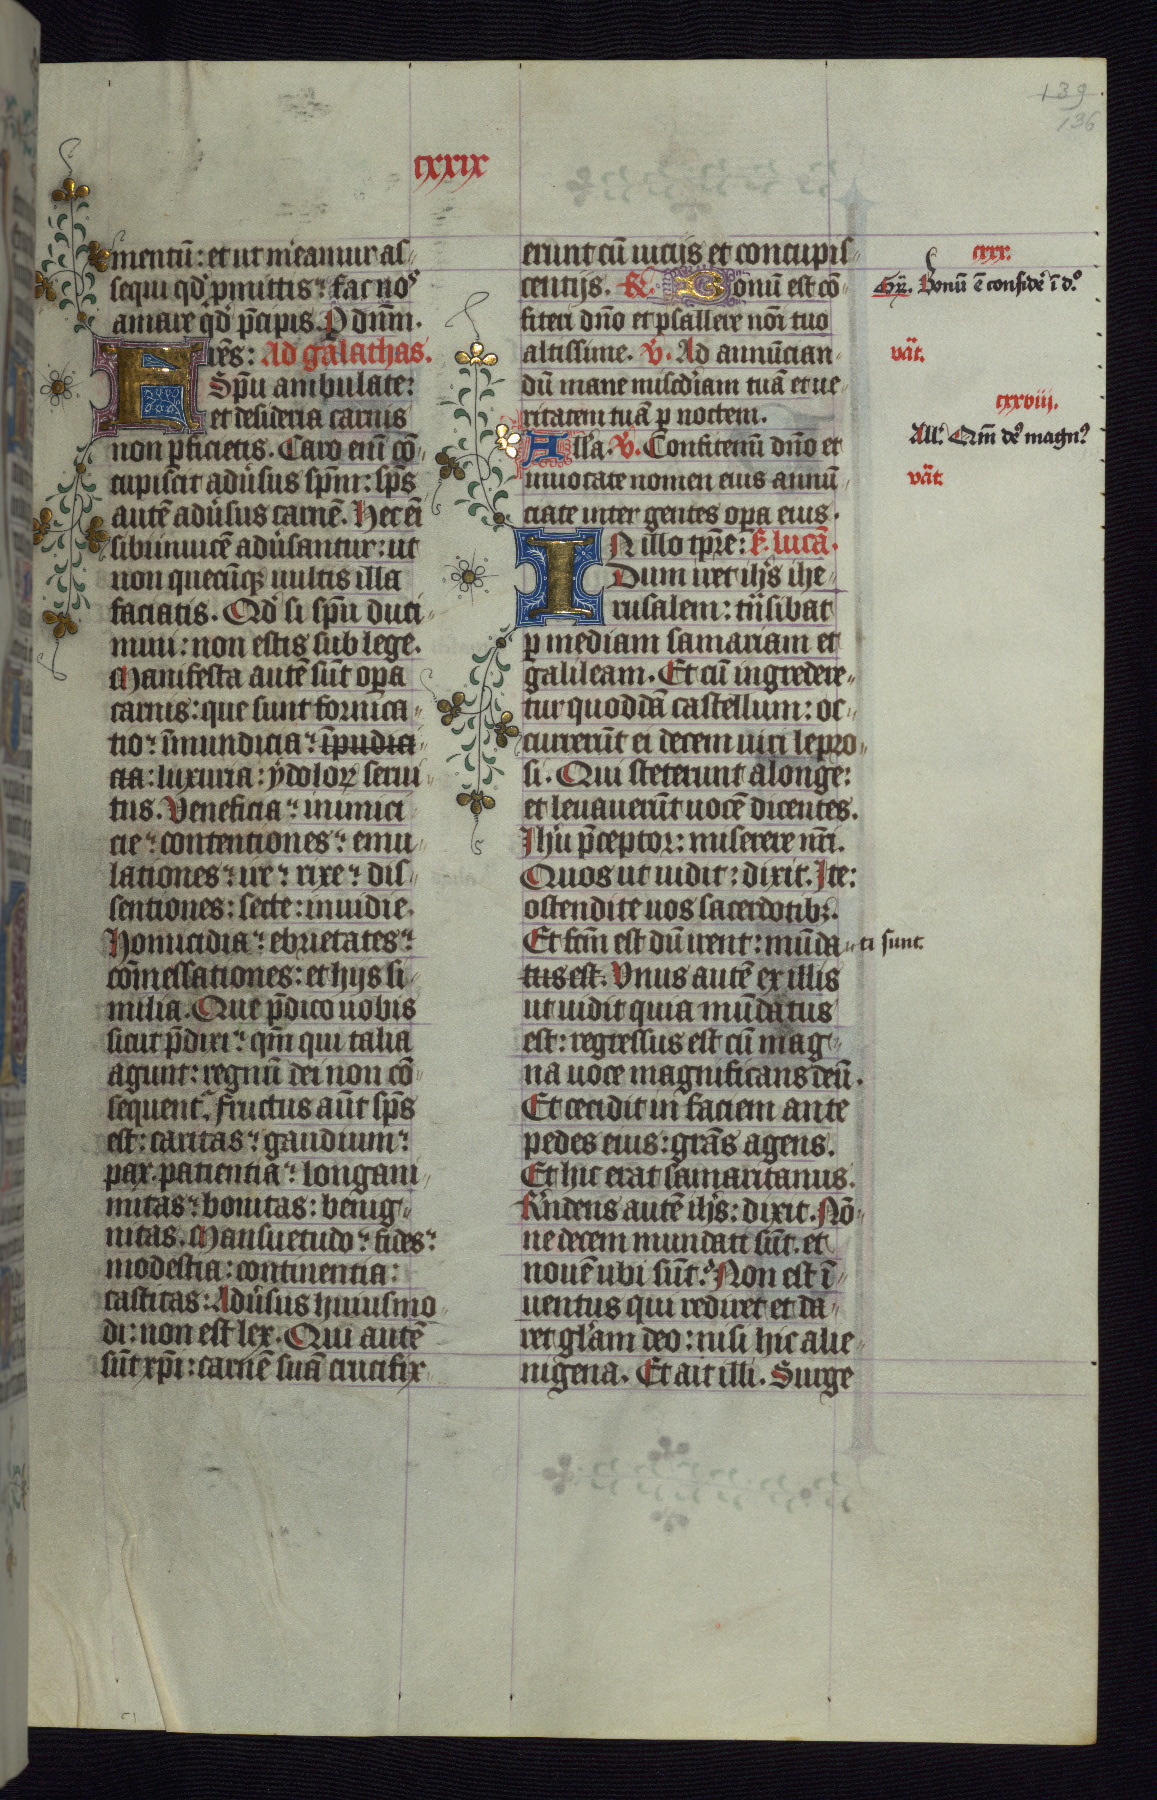 139
136
cxxix
mentū: et ut mˀeamur as-
sequi qd̛ ꝓmittis: fac nos
amare qd̛ p̄cipis. P dn̄m.
Frēs: Ad galathas.
Spū ambulate:
et desideria carnis
non ꝑficietis. Caro eni̅ cō-
cupiscit adu̾sus spm̄: sp̄s
autē adu̾sus carnē. Hec ei̅
sibi inuicē adu̾santur: ut
non quecūqꝫ uultis illa
faciatis. Qd̛ si spū duci-
mini: non estis sub lege.
Manifesta autē sūt oꝑa
carnis: que sunt fornica-
tio: i̅mundicia: i̅pudici-
cia: luxuria: ydoloꝝ serui-
tus. Veneficia: inimici-
cie: contentiones: emu-
lationes: ire: rixe: dis-
sentiones: secte: inuidie.
Homicidia: ebrietates:
cōmessationes: et hijs si-
milia. Que p̄dico uobis
sicut p̄dixi: qm̄ qui talia
agunt: regnū dei non cō-
sequent᷑. fructus aūt sp̄s
est: caritas: gaudium:
pax. patientia: longani-
mitas: bonitas: benig-
nitas. Mansuetudo: fides:
modestia: continentia:
castitas: Adu̾sus huiusmo-
di: non est lex. Qui autē
sūt xp̄i: carnē suā crucifix-
erunt cū uicijs et concupis-
centijs. R̸. Bonū est cō-
fiteri dn̄o et psallere noī tuo
altissime. V̸. Ad annūcian-
dū mane misc̄diam tuā et ue-
ritatem tuā ꝑ noctem.
All̄a. V̸. Confitemi̅ dn̄o et
inuocate nomen eius annū-
ciate inter gentes oꝑa eius.
IN illo tp̄re: S. lucā.
Dum iret ih̄s ihe-
rusalem: trānsibat
ꝑ mediam samariam et
galileam. Et cū ingredere-
tur quoddā castellum: oc-
currerūt ei decem uiri lepro-
si. Qui steterunt a longe:
et leuauerūt uocē dicentes.
Ihū p̄ceptor: miserere nr̄i.
Quos ut uidit: dixit. Ite:
ostendite uos sacerdotibꝫ.
Et fcm̄ est dū irent: mūda-
tus est. Vnus autē ex illis
ut uidit quia mūdatus
est: regressus est cū mag-
na uoce magnificans deū.
Et cecidit in faciem ante
pedes eius: grās agens.
Et hic erat samaritanus.
Rn̄dens autē ih̄s: dixit. Nō-
ne decem mundati sūt. et
nouē ubi sūt? Non est i̅-
uentus qui rediret et da-
ret gl̄am deo: nisi hic alie-
nigena. Et ait illi. Surge
cxxx.
Gr̄. Bonū ē confidē i̅ do
vāt.
cxxviij.
All̄. Qm̄ de᷒ magn᷒
vāt.
ti sunt